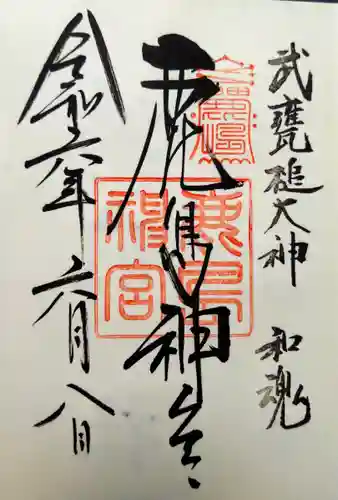 武甕槌大神 和魂
鹿島神宮
令和六年六月八日
鹿島
神宮